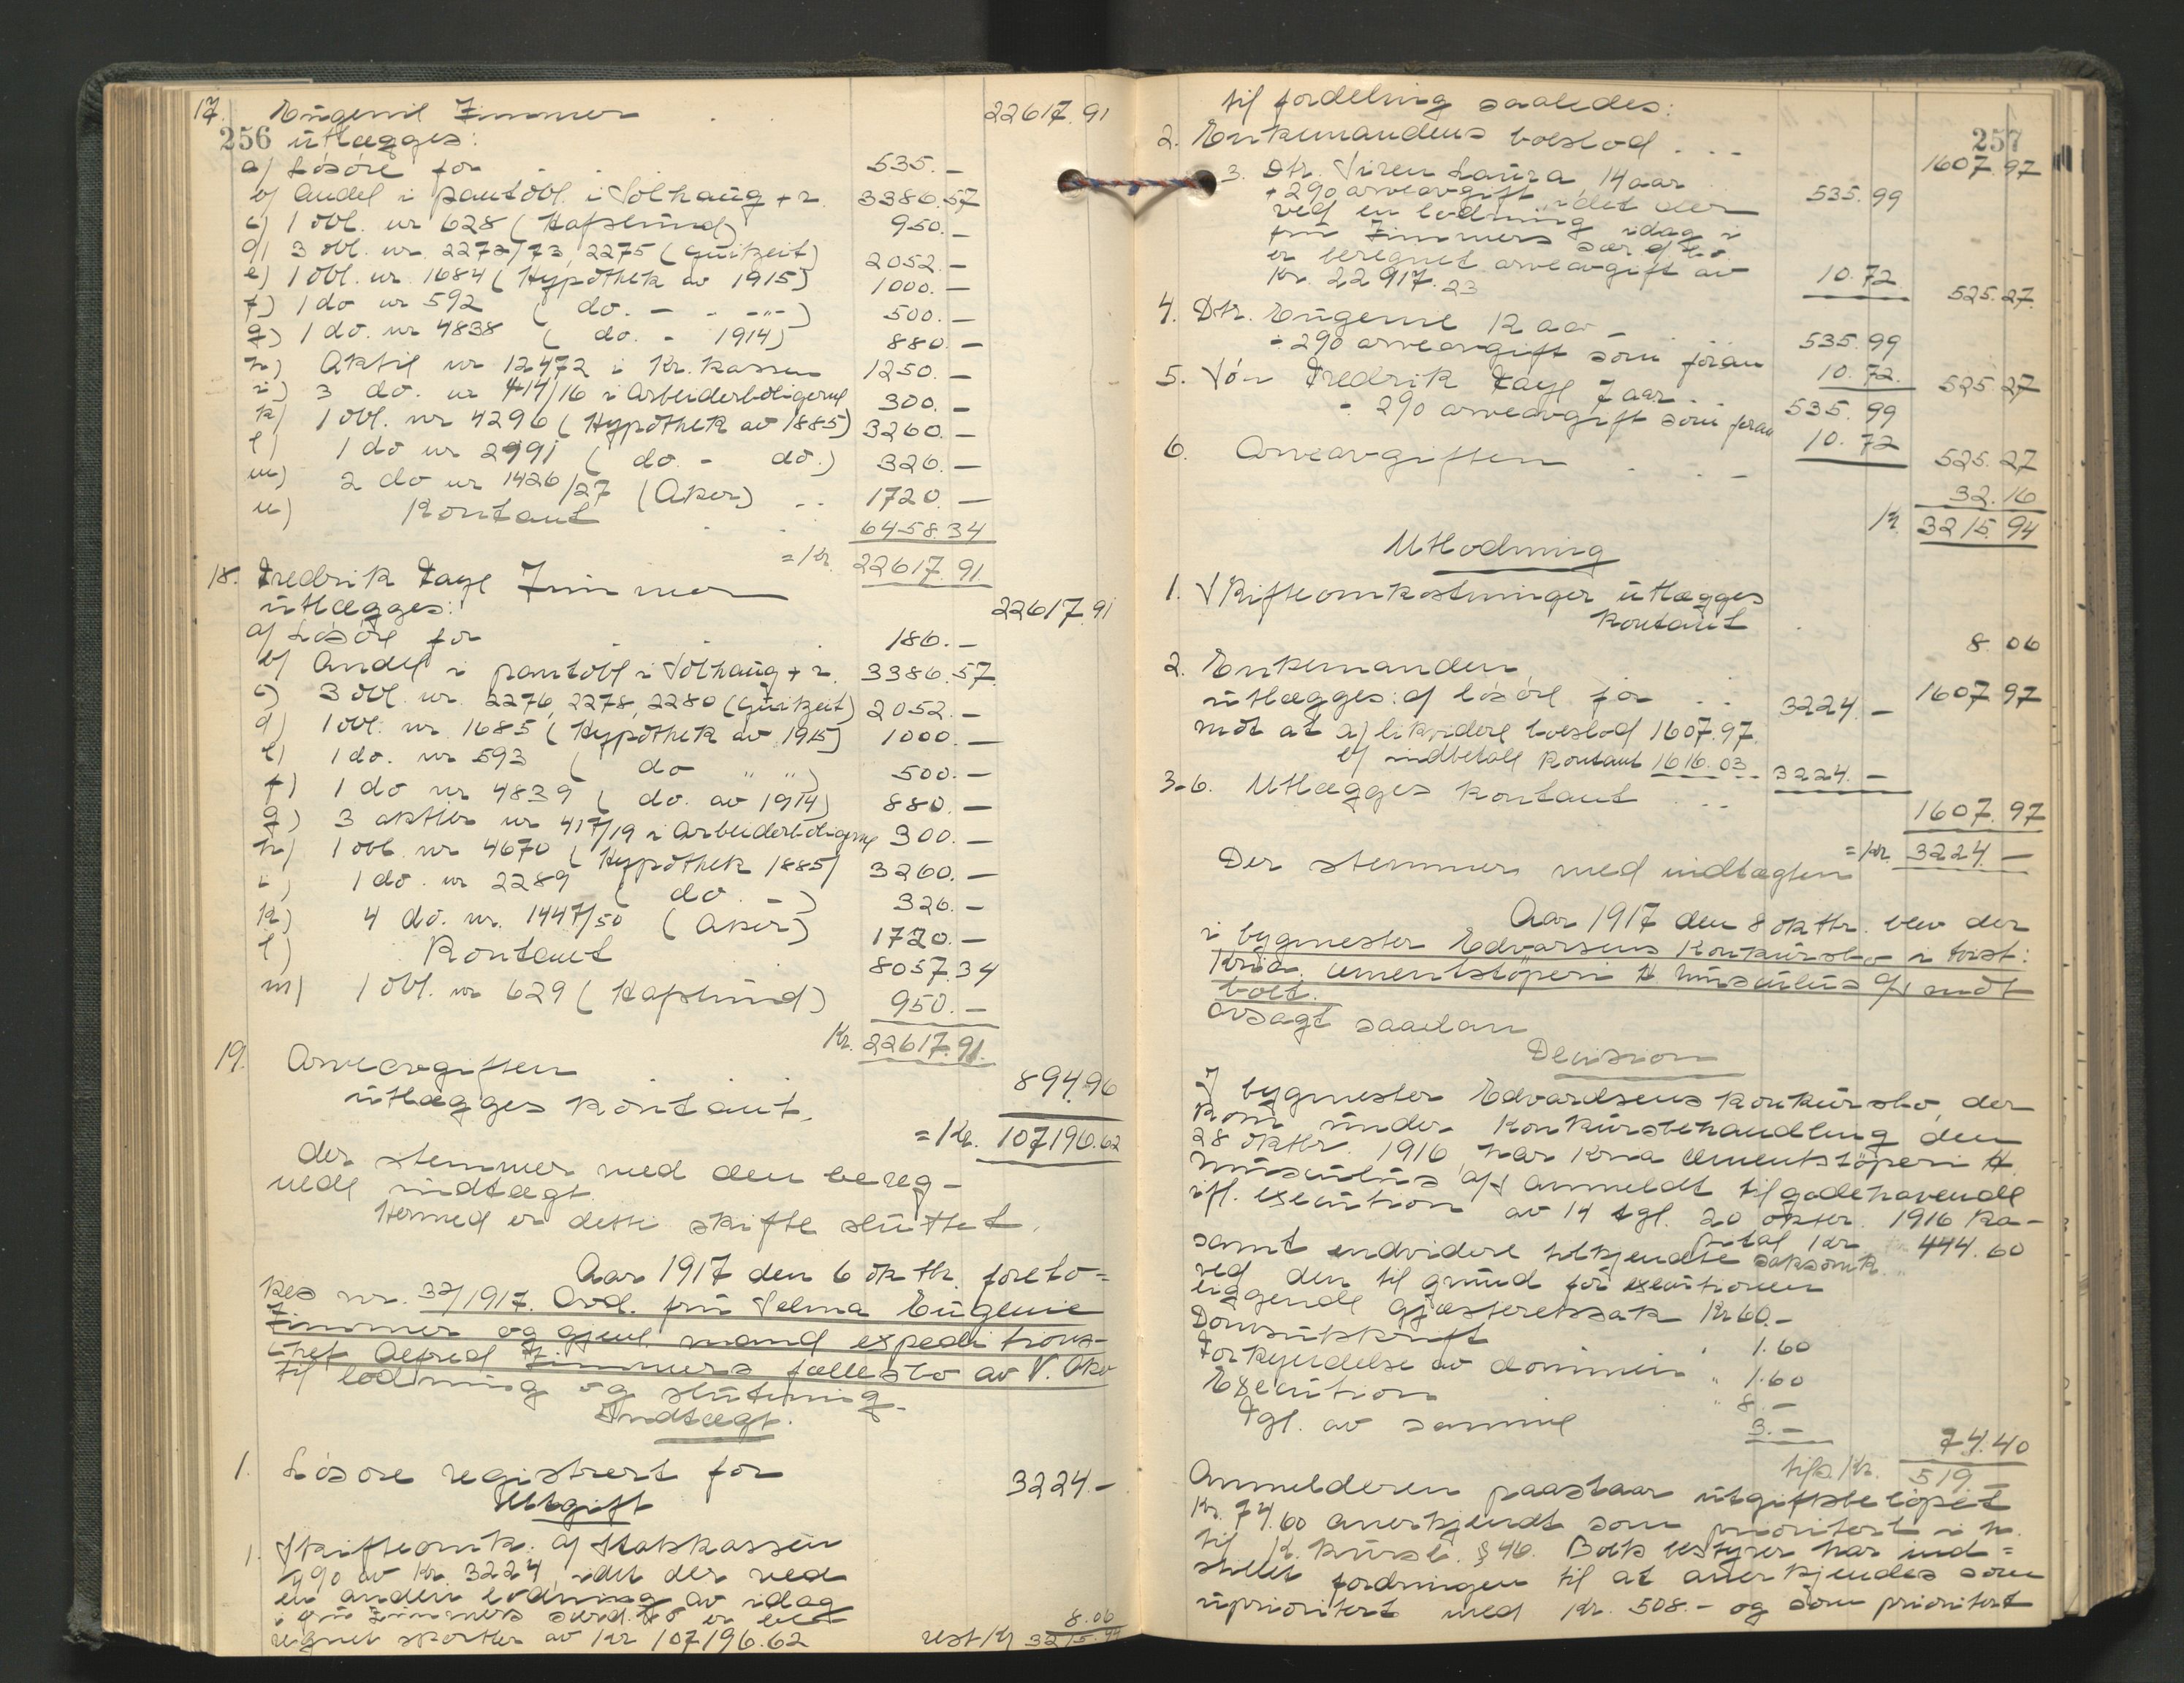 256
17. Eugenie Zimmer . 22617.91
utlægges:
a) Løsøre for . . 535.—
b) Andel i pantobl. i Solhaug + r. 3386.57
c) 1 obl. nr 628 (Hafslund) 950.—
d) 3 obl. nr. 2272/73, 2275 (Guitzeit) 2052.—
e) 1 obl. nr. 1684 (Hypothek av 1915) 1000.—
f) 1 do nr 592 ( do. - . -"-) 500.—
g) 1 do. nr 4838 ( do. - 1914) 880.—
h) Aktie nr 12472 i Kr. kassen 1250.—
i) 3 do. nr 414/16 i Arbeiderboligerne 300.—
k) 1 obl. nr 4296 (Hypothek av 1885) 3260.—
l) 1 do nr 2991 ( do. - do.) 326.—
m) 2 do nr 1426/27 (Aker) .. 1720.—
n) Kontant . . 6458.34
= Kr. 22617.91
18. Fredrik Taye Zimmer
utlægges: 22617.91
a) Løsøre for . . . 186.—
b) Andel i pantobl i Solhaug + r. 3386.57
c) 3 obl. nr. 2276, 2278, 2280 (Guitzeit) 2052.—
d) 1 obl. nr. 1685 (Hypothek av 1915) 1000.—
e) 1 do. nr 593 ( do " ") 500.—
f) 1 do nr 4839 ( do. av 1914) 880.—
g) 3 aktier nr 417/19 i Arbeiderboligerne 300.—
h) 1 obl. nr 4670 (Hypothek 1885) 3260.—
i) 1 do. nr 2289 ( do. -) 326.—
k) 4 do. nr. 1447/50 (Aker) 1720.—
l) Kontant . 8057.34
m) 1 obl. nr 629 (Hafslund) 950.—
Kr. 22617.91.
19. Arveavgiften
utlægges kontant. 894.96
= Kr. 107196.62
der stemmer med den bereg-
nede indtægt.
Hermed er dette skifte sluttet.
Aar 1917 den 6 oktbr. foreto-
kes nr. 37/1917. Avd. fru Selma Eugenie
Zimmer og gjenl. mand expeditions-
chef Alfred Zimmers fællesbo av V. Aker
til lodning og slutning.
Indtægt.
1. Løsøre registrert for 3224.—
Utgift
1. Skifteomk. a) Statskassen
¼% av Kr. 3224, idet der ved
en anden lodning av idag
i fru Zimmers særd. bo er be-
regnet sportler av Kr 107196.62 8.06
rest Kr 3215.94
257
til fordeling saaledes:
2. Enkemandens boeslod . . . 1607.97
3. Dtr. Viven Laura, 14 aar 535.99
÷ 2% arveavgift, idet der
ved en lodning idag i
fru Zimmers særd. bo.
er beregnet arveavgift av
Kr. 22917.23 10.72 525.27
4. Dtr. Eugenie 12 aar - 535.99
÷ 2% arveavgift som foran 10.72. 525.27
5. Søn Fredrik Taye 7 aar . . 535.99
- 2% arveavgift som foran 10.72 525.27
6. Arveavgiften . . - 32.16
Kr. 3215.94
Utlodning
1. Skifteomkostninger utlægges
kontant . 8.06
2. Enkemanden 1607.97
utlægges: a) løsøre for .. 3224.—
mot at a) likvidere boeslod 1607.97.
b) indbetale kontant 1616.03 3224.—
3-6. Utlægges kontant ... 1607.97
= Kr. 3224.—
Der stemmer med indtægten
Aar 1917 den 8 oktbr. blev der
i bygmester Edvarsens konkursbo i tvist:
Kria. cementstøperi H Musculus A/S mot
boet.
avsagt saadan
Decision
I bygmester Edvardsens konkursbo, der
kom under konkursbehandling den
28 oktbr. 1916, har Kria cementstøperi H.
Musculus A/S anmeldt tilgodehavende
ifl. execution av 14 tgl. 20 oktbr. 1916 ka-
pital Kr. 444.60
samt endvidere tilkjendte saksomk.
ved den til grund for executionen
liggende gjæsteretssak Kr 60.—
Domsutskrift 1.60
Forkyndelse av dommen " 1.60
Execution " 8.—
Tgl. av samme 3.— 74.40
tils. Kr. 519.—
Anmelderen paastaar utgiftsbeløpet
Kr. 74.60 anerkjendt som prioritert i h.
til K. kursl. § 46. Boets bestyrer har ind-
stillet fordringen til at anerkjendes som
uprioritert med Kr. 508.— og som prioritert